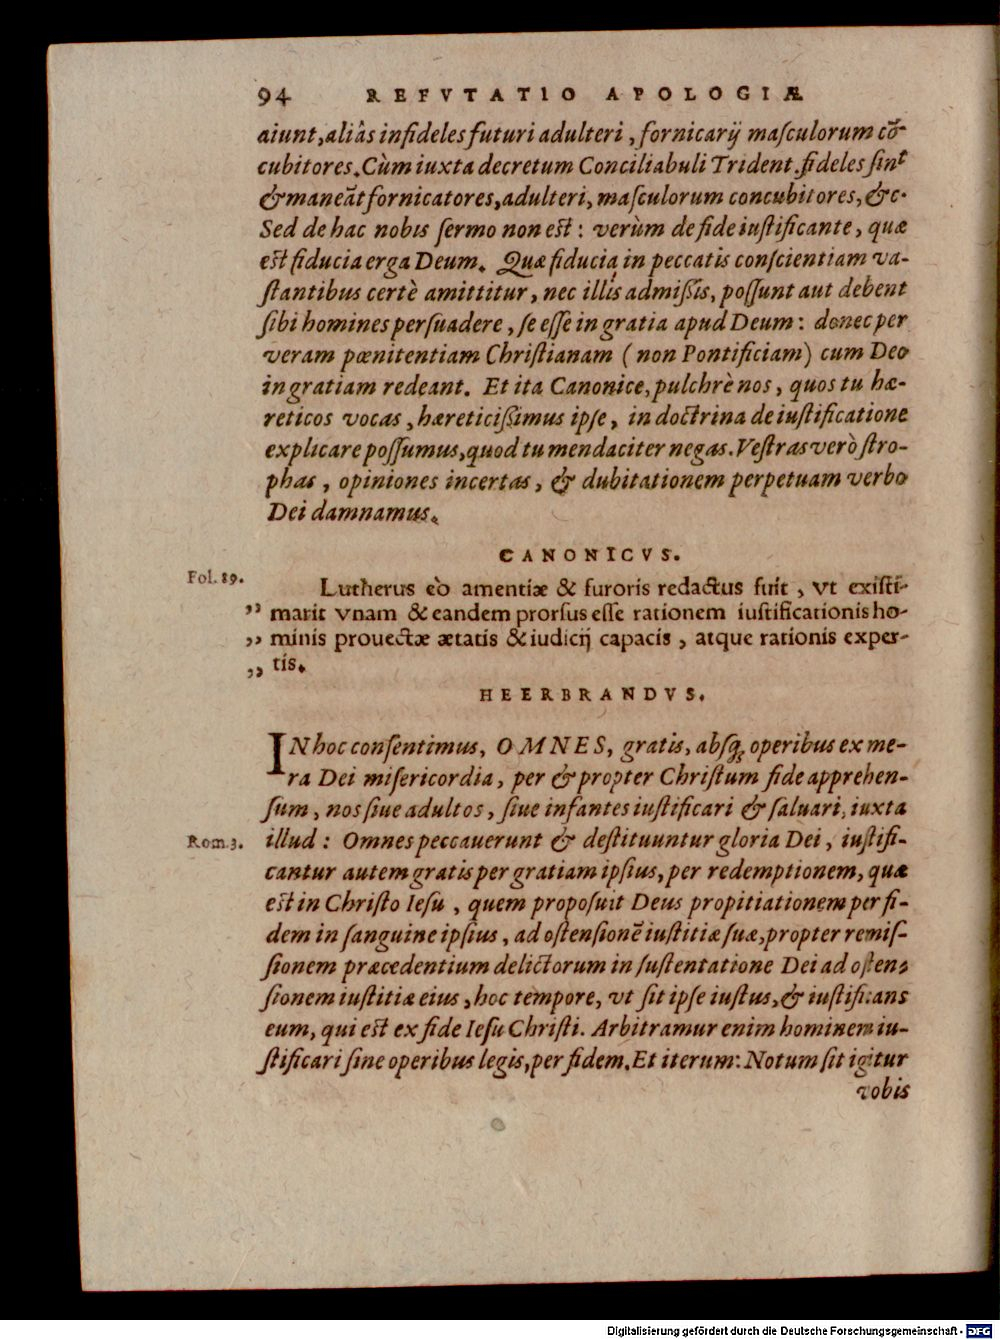 94 REFVTATIO APOLOGIÆ
aiunt, aliâs infideles futuri adulteri, fornicarij maſculorum cō-
cubitores. Cùm iuxta decretum Conciliabuli Trident. fideles ſint
& maneãt fornicatores, adulteri, maſculorum concubitores, &c.
Sed de hac nobis ſermo non eſt: verùm de fide iuſtificante, quæ
eſt fiducia erga Deum. Quæ fiducia in peccatis conſcientiam va-
ſtantibus certè amittitur, nec illis admiſsis, poſſunt aut debent
ſibi homines perſuadere, ſe eſſe in gratia apud Deum: donec per
veram pœnitentiam Chriſtianam (non Pontificiam) cum Deo
in gratiam redeant. Et ita Canonice, pulchrè nos, quos tu hæ-
reticos vocas, hæreticiſsimus ipſe, in doctrina de iuſtificatione
explicare poſſumus, quod tu mendaciter negas. Veſtras verò ſtro-
phas, opiniones incertas, & dubitationem perpetuam verbo
Dei damnamus.
CANONICVS.
Fol. 89. Lutherus eò amentiæ & furoris redactus fuit, vt exiſti-
„ marit vnam & eandem prorſus eſſe rationem iuſtificationis ho-
„ minis prouectæ ætatis & iudicij capacis, atque rationis exper-
„ tis.
HEERBRANDVS.
IN hoc conſentimus, OMNES, gratis, abſq; operibus ex me-
ra Dei miſericordia, per & propter Chriſtum fide apprehen-
ſum, nos ſiue adultos, ſiue infantes iuſtificari & ſaluari, iuxta
Rom. 3. illud: Omnes peccauerunt & deſtituuntur gloria Dei, iuſtifi-
cantur autem gratis per gratiam ipſius, per redemptionem, quæ
eſt in Chriſto Ieſu, quem propoſuit Deus propitiationem per fi-
dem in ſanguine ipſius, ad oſtenſionẽ iuſtitiæ ſuæ, propter remiſ-
ſionem præcedentium delictorum in ſuſtentatione Dei ad oſten-
ſionem iuſtitiæ eius, hoc tempore, vt ſit ipſe iuſtus, & iuſtificans
eum, qui eſt ex fide Ieſu Chriſti. Arbitramur enim hominem iu-
ſtificari ſine operibus legis, per fidem. Et iterum: Notum ſit igitur
vobis
Digitalisierung gefördert durch die Deutsche Forschungsgemeinschaft - DFG